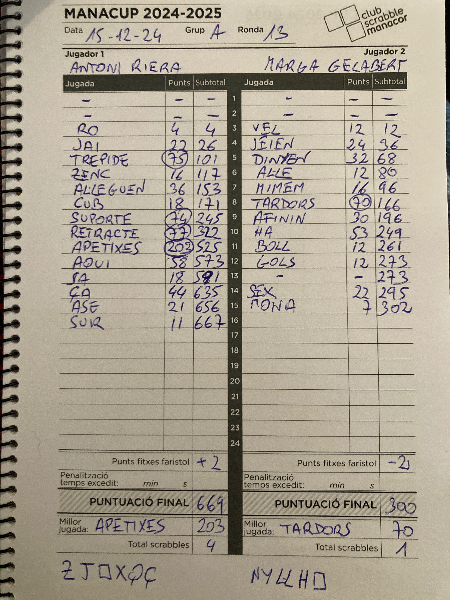 MANACUP 2024-2025
club scrabble manacor
Data 15-12-24 Grup A Ronda 13
Jugador 1 Jugador 2
ANTONI RIERA MARGA GELABERT
Jugada Punts Subtotal Jugada Punts Subtotal
- - - 1 - - -
- - - 2 - - -
RO 4 4 3 VEL 12 12
JAI 22 26 4 JEIEN 24 36
TREPIDE 75 101 5 DINYEN 32 68
ZENC 16 117 6 ALLE 12 80
ALLEGUEN 36 153 7 MIMEM 16 96
CUB 18 171 8 TARDORS 70 166
SUPORTE 74 245 9 AFININ 30 196
RETRACTE 77 322 10 HA 53 249
APETIXES 203 525 11 BOLL 12 261
AQUI 573 12 GOLS 12 273
18 591 13 - - 273
ÇA 44 635 14 SEX 22 295
ASE 21 656 15 MONA 7 302
SUR 11 667 16
17
18
19
20
21
22
23
24
Punts fitxes faristol +2 Punts fitxes faristol -2
Penalització temps excedit: min s Penalització temps excedit: min s
PUNTUACIÓ FINAL 669 PUNTUACIÓ FINAL 300
Millor jugada: APETIXES 203 Millor jugada: TARDORS 70
Total scrabbles 4 Total scrabbles 1